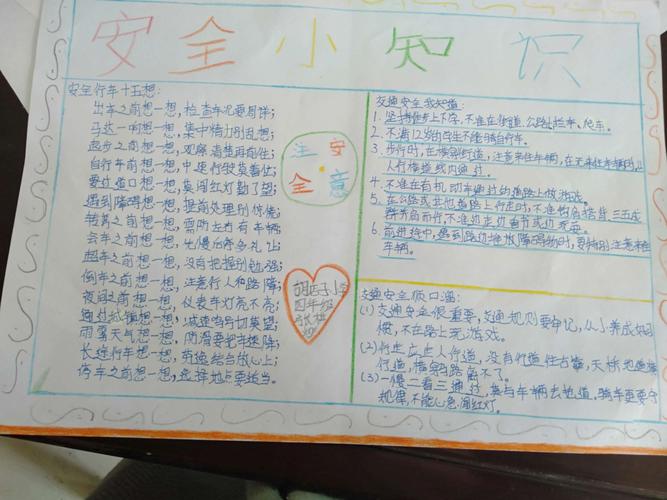 安全小知识
安全行车十五想:
出车之前想一想,检查车况要周详;
马达一响想一想,集中精力别乱想;
起步之前想一想,观察清楚再前往;
自行车前想一想,中速行驶莫着忙;
要过道口想一想,莫闯红灯勤了望;
遇到障碍想一想,提前处理别惊慌;
转弯之前想一想,需防左右有车辆;
会车之前想一想,先慢后停多礼让;
超车之前想一想,没有把握别勉强;
倒车之前想一想,注意行人和路障;
夜间之前想一想,仪表车灯亮不亮;
通过城镇想一想,减速鸣号切莫望;
雨雪天气想一想,防滑要把车速降;
长途行车想一想,劳逸结合放心上;
停车之前想一想,选择地点要妥当。
注安
全意
胡店子小学
四年级
交通安全我知道:
1. 坚持徒步上下学,不准在街道、公路上拦车、爬车。
2. 不满12岁的学生不能骑自行车。
3. 步行时,在横别街道,注意来往车辆,在无来往车辆时,从
人行横道线内通过。
4. 不准在有机动车通过的道路上做游戏。
5. 在公路或其他道路上行走时,不准勾肩搭背三五成
群并肩而行不准边走边看书或边打闹。
6. 前进途中,遇到路边摆放障碍物时,要特别注意来往
车辆。
交通安全顺口溜:
(1) 交通安全很重要,交通规则要牢记,从小养成好习
惯,不在路上玩游戏。
(2) 行走应走人行道,没有行道往右靠,天桥地道横
行道,横穿马路离不了。
(3) 一慢二看三通过,莫与车辆去抢道,骑车更要守
规律,不能心急闯红灯。